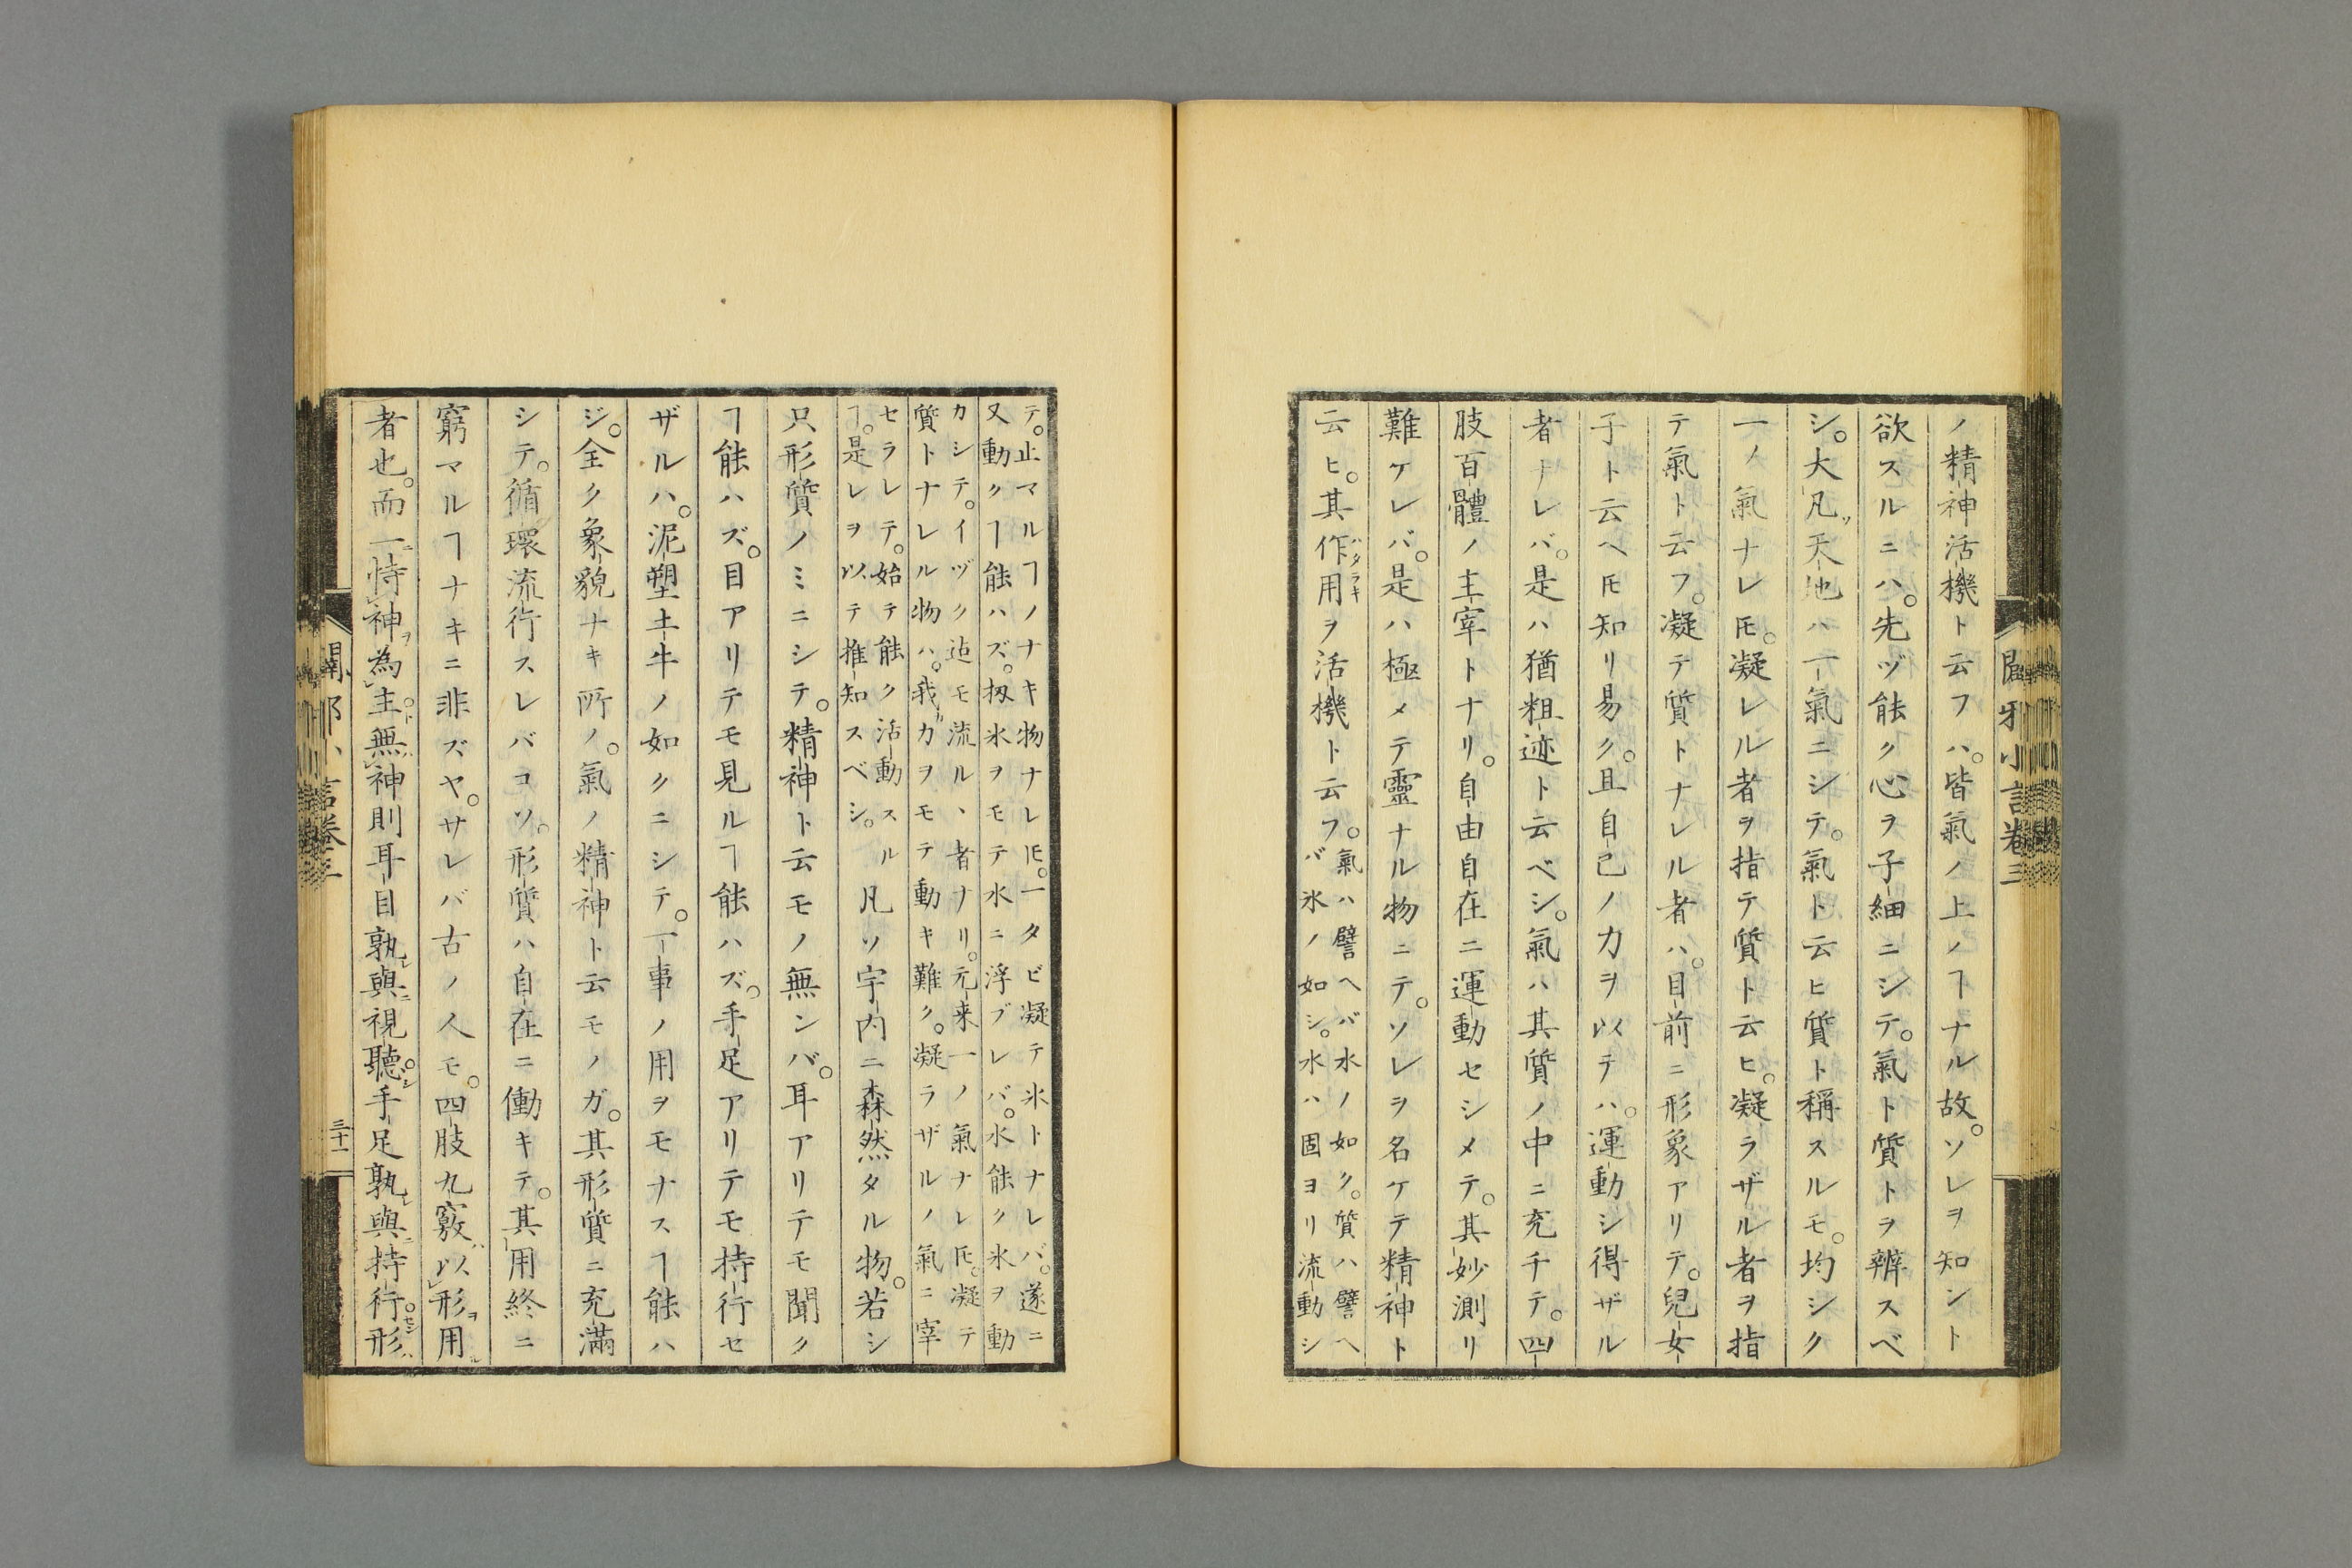 ノ精神活機ト云フハ。皆氣ノ上ノヿナル故。ソレヲ知ント
欲スルニハ。先ヅ能ク心ヲ子細ニシテ。氣ト質トヲ辨スベ
シ。大凡ソ天地ハ一氣ニシテ。氣ト云ヒ質ト稱スルモ。均シク
一ノ氣ナレ𪜈。凝レル者ヲ指テ質ト云ヒ。凝ラザル者ヲ指
テ氣ト云フ。凝テ質トナレル者ハ。目前ニ形象アリテ。兒女
子ト云ヘ𪜈知リ易ク。且自己ノ力ヲ以テハ。運動シ得ザル
者ナレバ。是ハ猶粗迹ト云ベシ。氣ハ其質ノ中ニ充チテ。四
肢百體ノ主宰トナリ。自由自在ニ運動セシメテ。其妙測リ
難ケレバ。是ハ極メテ靈ナル物ニテ。ソレヲ名ケテ精神ト
云ヒ。其作用ハタラキヲ活機ト云フ。
氣ハ譬ヘバ水ノ如ク。質ハ譬ヘ
バ氷ノ如シ。水ハ固ヨリ流動シ
テ。止マルヿノナキ物ナレ𪜈。一タビ凝テ氷トナレバ。遂ニ
又動クヿ能ハズ。扨氷ヲモテ水ニ浮ブレバ。水能ク氷ヲ動
カシテ。イヅク迠モ流ルヽ者ナリ。元来一ノ氣ナレ𪜈。凝テ
質トナレル物ハ。我ガ力ヲモテ動キ難ク。凝ラザルノ氣ニ宰
セラレテ。始テ能ク活動スル
ヿ。是レヲ以テ推知スベシ。
凡ソ宇内ニ森然タル物。若シ
只形質ノミニシテ。精神ト云モノ無ンバ。耳アリテモ聞ク
ヿ能ハズ。目アリテモ見ルヿ能ハズ。手足アリテモ持行セ
ザルハ。泥塑土牛ノ如クニシテ。一事ノ用ヲモナスヿ能ハ
ジ。全ク象貌ナキ所ノ。氣ノ精神ト云モノガ。其形質ニ充滿
シテ。循環流行スレバコソ。形質ハ自在ニ働キテ。其用終ニ
窮マルヿナキニ非ズヤ。サレバ古ノ人モ。四肢九竅ハ以形ヲ用ル
者也。而一ニ恃神ヲ為主ト。無神則耳目孰レカ與ニ視聽シ。手足孰レカ與ニ持行セシ。形ハ
三十一